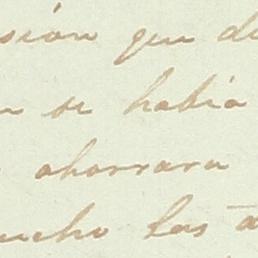 sión que de
n se habia
ahorrara
ucho las a